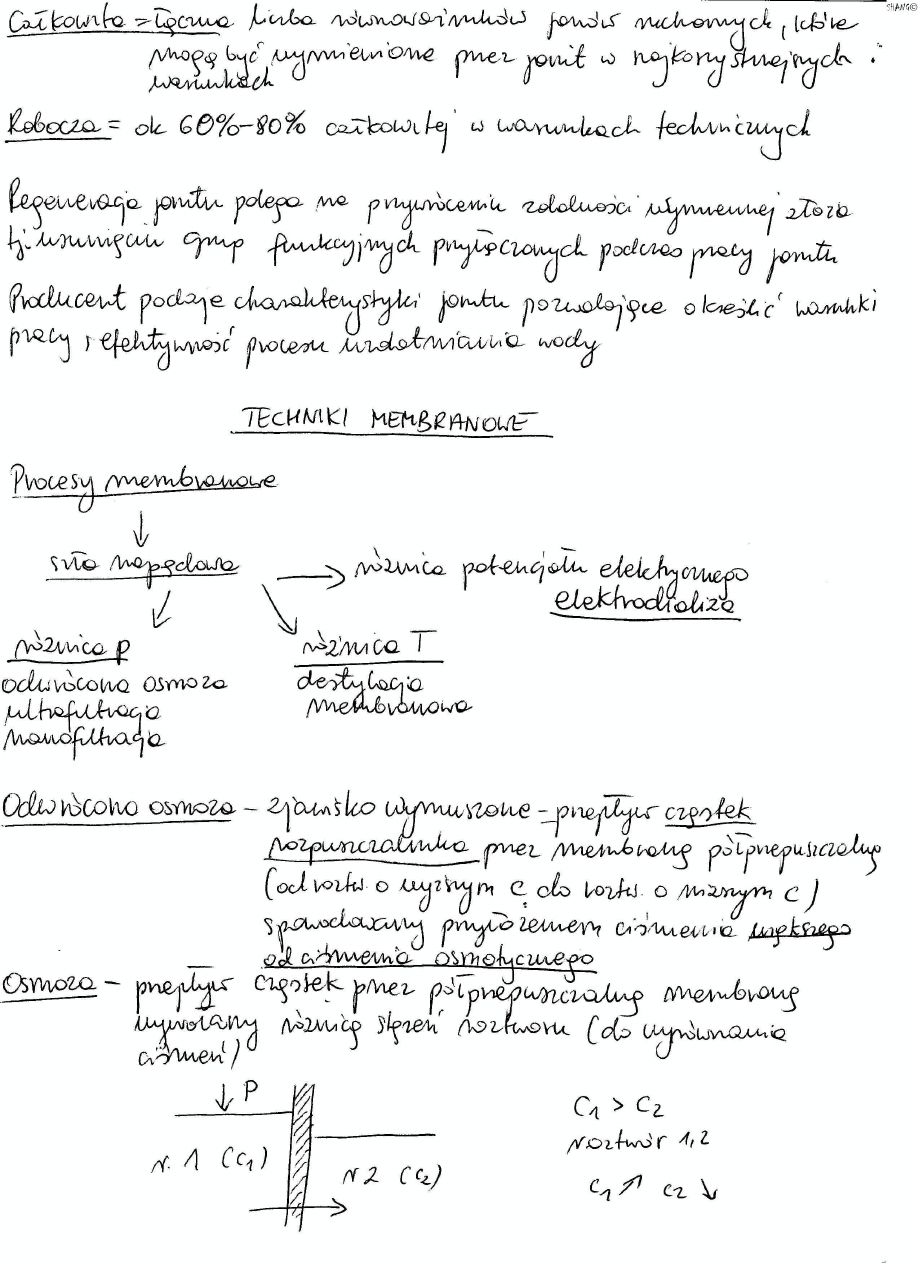 SHANG©
Całkowita = łączna liczba równoważników jonów ruchomych, które
mogą być wymienione przez jonit w najkorzystniejszych :
warunkach
Robocza = ok 60%-80% całkowitej w warunkach technicznych
Regeneracja jonitu polega na przywróceniu zdolności wymiennej złoża
tj. usunięciu grup funkcyjnych przyłączonych podczas pracy jonitu
Producent podaje charakterystyki jonitu pozwalające określić warunki
pracy i efektywność procesu uzdatniania wody
TECHNIKI MEMBRANOWE
Procesy membranowe
siła napędowa → różnica potencjału elektrycznego
elektrodializa
różnica p różnica T
odwrócona osmoza destylacja
ultrafiltracja membranowa
nanofiltracja
Odwrócona osmoza – zjawisko wymuszone – przepływ cząstek
rozpuszczalnika przez membranę półprzepuszczalną
(od roztw. o wyższym c do roztw. o niższym c)
spowodowany przyłożeniem ciśnienia większego
od ciśnienia osmotycznego
Osmoza – przepływ cząstek przez półprzepuszczalną membranę
wywołany różnicą stężeń roztworu (do wyrównania
ciśnień)
↓ P
r. 1 (c₁) r 2 (c₂)
C₁ > C₂
roztwór 1,2
c₁ ↗ c₂ ↘